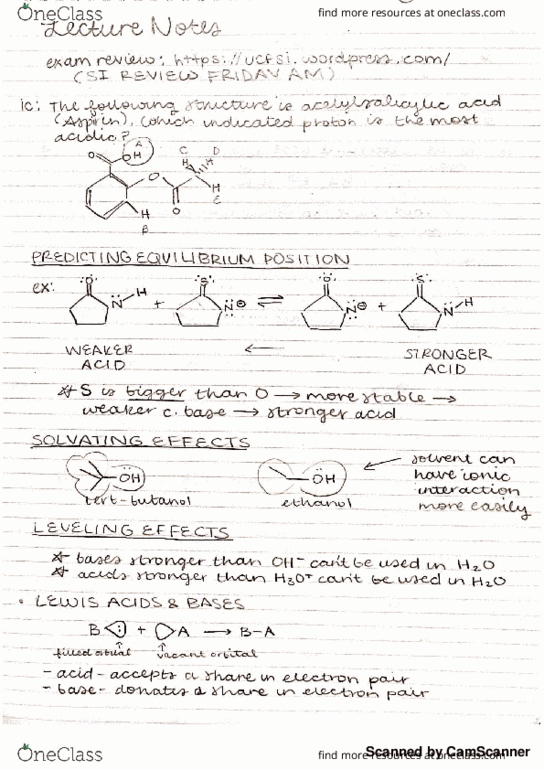 OneClass
find more resources at oneclass.com
Lecture Notes
exam review: https://ucfsi.wordpress.com/
(SI REVIEW FRIDAY AM)
ic: The following structure is acetylsalicylic acid
(Aspirin), which indicated proton is the most
acidic?
A C D
O OH H H
O H
E
H O
B
PREDICTING EQUILIBRIUM POSITION
ex: :O: N H + :S: N⊖ ⇌ :O: N⊖ + :S: N H
WEAKER ← STRONGER
ACID ACID
* S is bigger than O → more stable →
weaker c. base → stronger acid
SOLVATING EFFECTS
ÖH ÖH ← solvent can
have ionic
tert-butanol ethanol interaction
more easily
LEVELING EFFECTS
* bases stronger than OH⁻ can't be used in H₂O
* acids stronger than H₃O⁺ can't be used in H₂O
• LEWIS ACIDS & BASES
B: + A → B-A
filled orbital vacant orbital
- acid - accepts a share in electron pair
- base - donates a share in electron pair
OneClass
find more resources at oneclass.com
Scanned by CamScanner